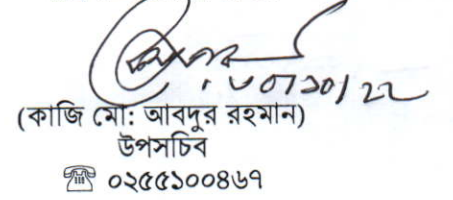 ৩০/১০/২২
(কাজি মো: আবদুর রহমান)
উপসচিব
☎ ০২৫৫১০০৪৬৭